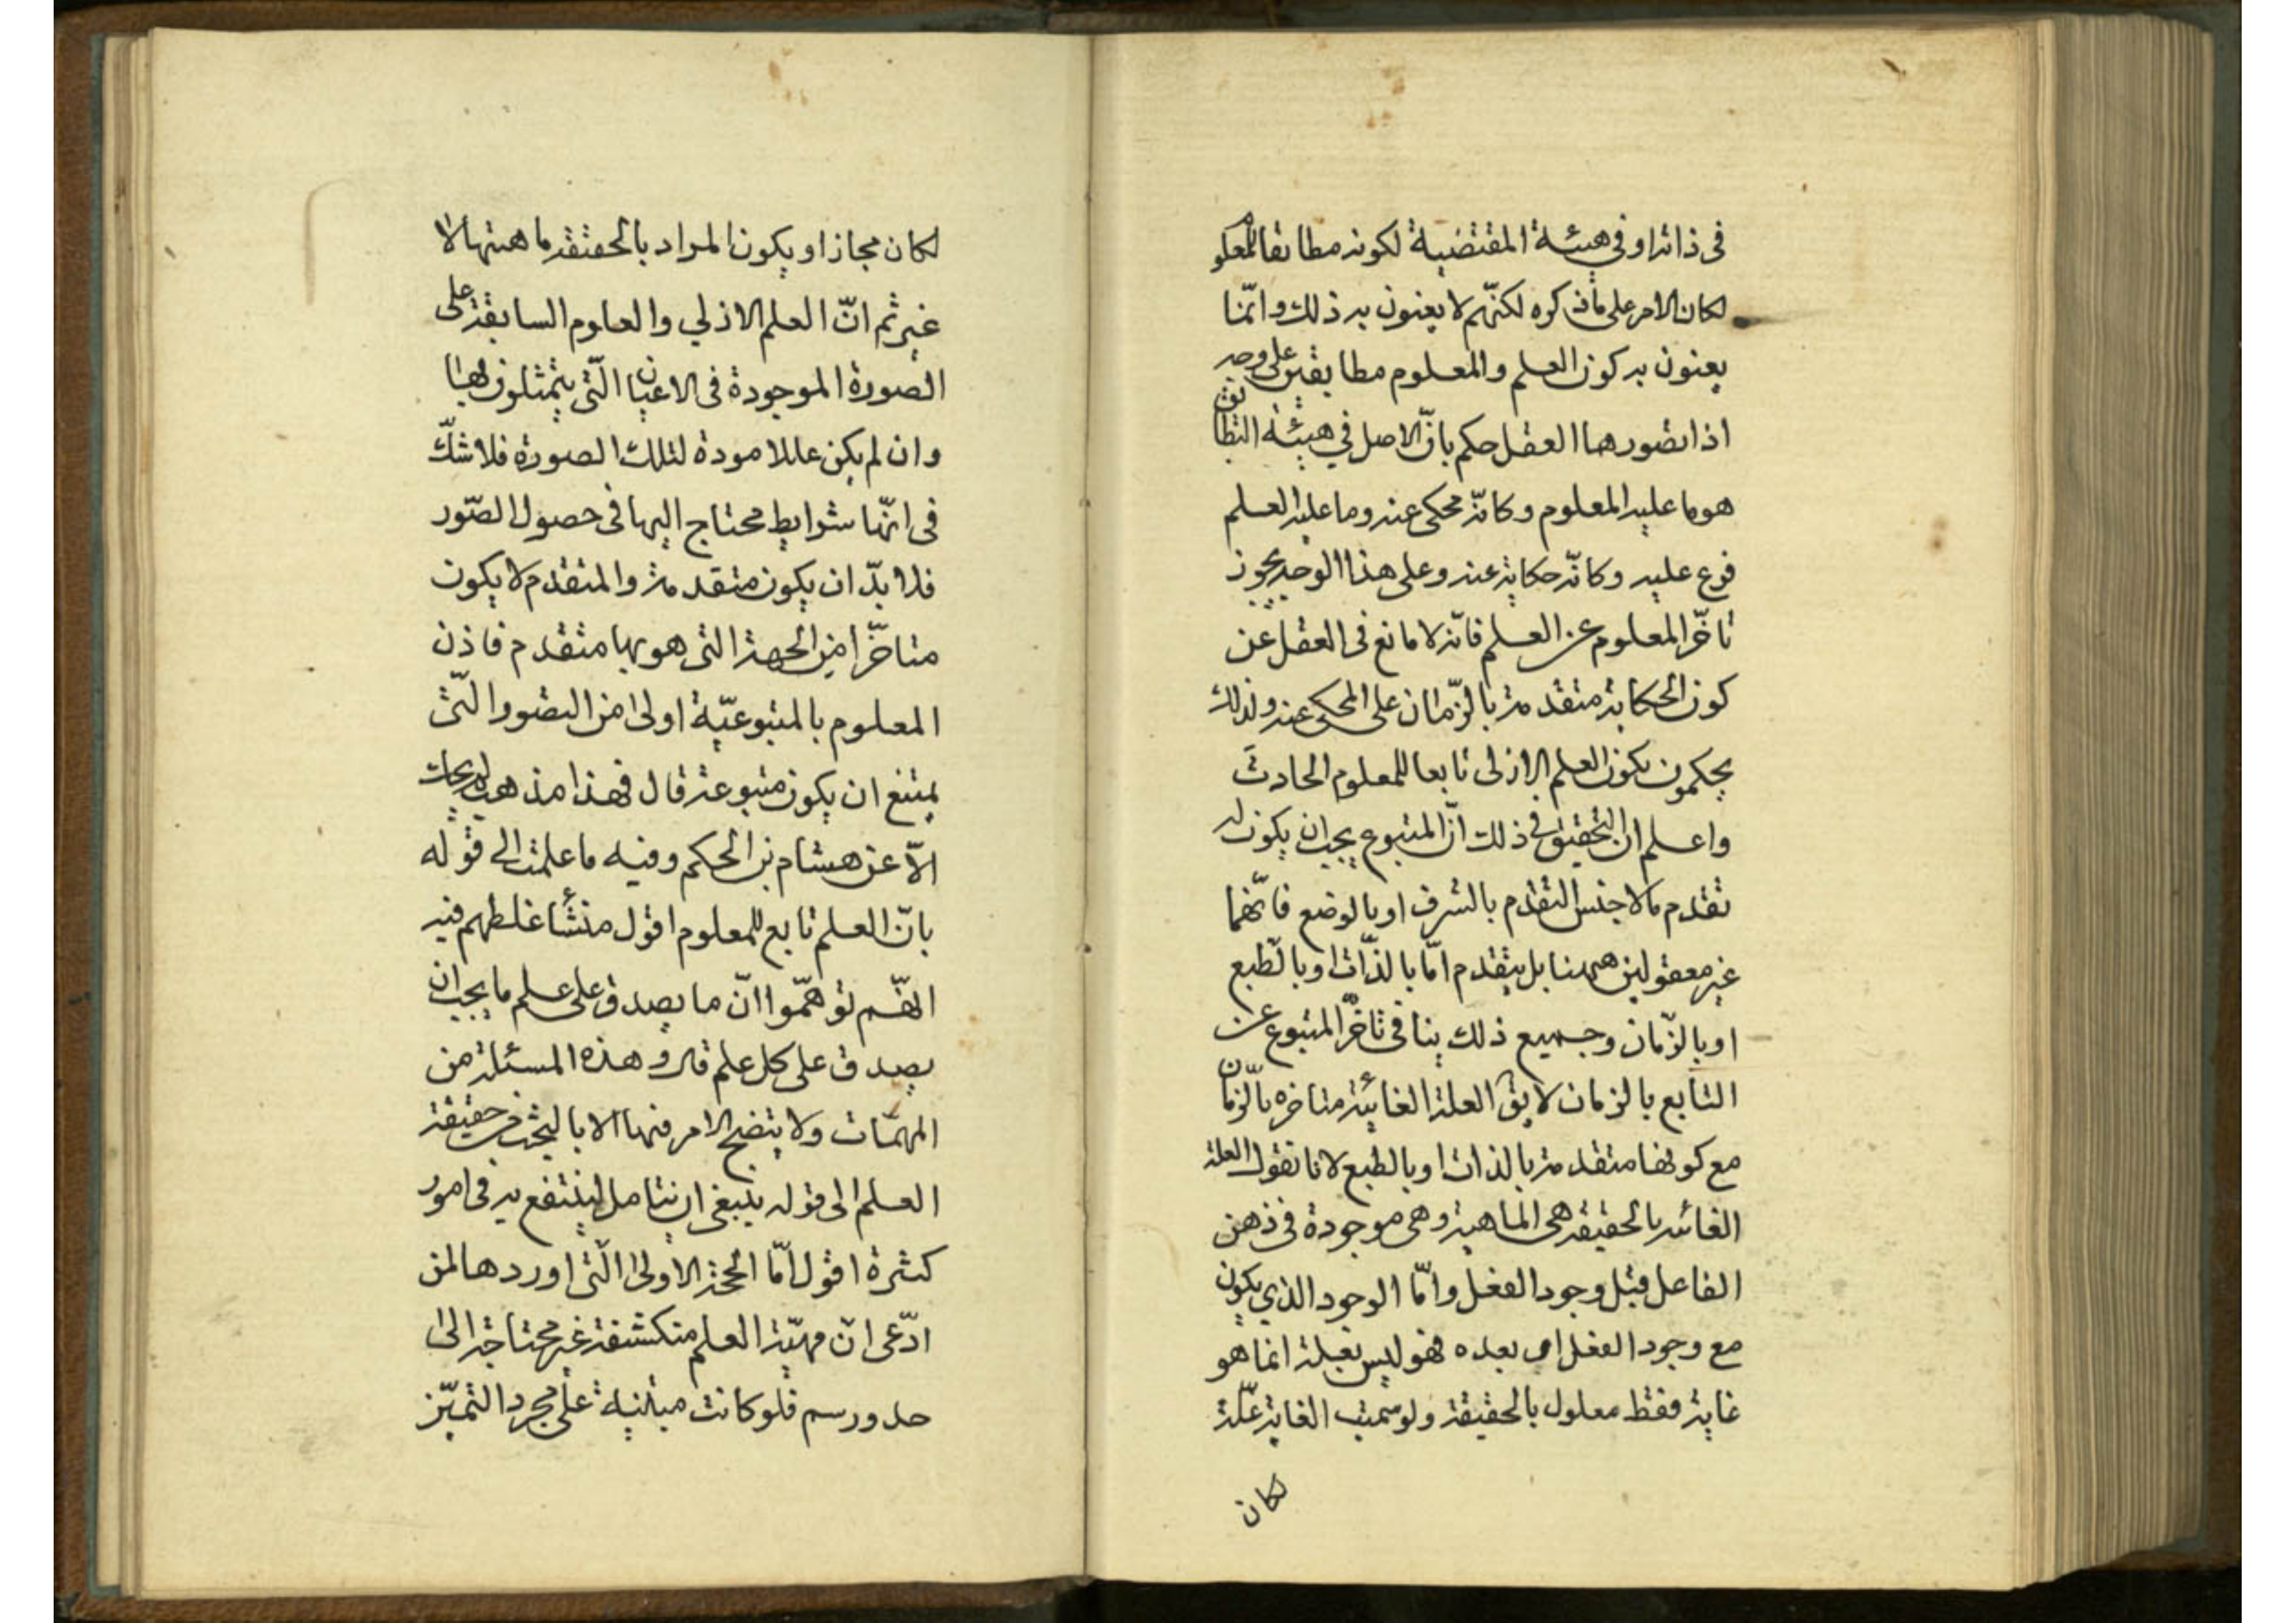 فى ذاته او فى هيئـة المقتضية لكونه مطابقا للمعلوم
لكان الامر على ما ذكره لكنّهم لا يعنون به ذلك وانّما
يعنون به كون العلم والمعلوم مطابقين على وجه
اذا تصورهما العقل حكم بانّ الاصل في هيئة التطابق
هو ما عليه المعلوم وكانّه محكى عنه وما عليه العلم
فرع عليه وكانّه حكاية عنه وعلى هذا الوجه يجوز
تاخّر المعلوم عن العلم فانّه لا مانع فى العقل عن
كون الحكاية متقدمة بالزّمان على المحكى عنه ولذلك
يحكمون بكون العلم الازلى تابعا للمعلوم الحادث
واعلم ان التحقيق فى ذلك انّ المتبوع يجب ان يكون له
تقدم ما لا جنس التقدم بالشرف او بالوضع فانّهما
غير معقولين ههنا بل يتقدم امّا بالذّات او بالطّبع
او بالزّمان وجميع ذلك ينافى تاخّر المتبوع عن
التابع بالزمان لا يق العلة الغائية متاخره بالّزمان
مع كونها متقدمة بالذات او بالطبع لانا نقول العلة
الغائيه بالحقيقه هى الماهية وهى موجودة فى ذهن
الفاعل قبل وجود الفعل وامّا الوجود الذي يكون
مع وجود الفعل او بعده فهو ليس بعلة انما هو
غاية فقط معلول بالحقيقة ولو سميت الغاية علّة
لكان
لكان مجازا ويكون المراد بالحقيقه ماهيتها لا
غير ثم انّ العلم الازلي والعلوم السابقة على
الصورة الموجودة فى الاعيان الّتى يتمثلون بها
وان لم يكن عللا مودة لتلك الصورة فلا شكّ
فى انّها شرايط محتاج اليها فى حصول الصّور
فلا بدّ ان يكون متقدمة والمتقدم لا يكون
متاخّرا من الجهة التى هو بها متقدم فاذن
المعلوم بالمتبوعيّة اولى من التصور الّتى
يمتنع ان يكون متبوعة قال فهذا مذهب
الاّ عن هشام بن الحكم وفيه ما علمت الى قوله
بانّ العلم تابع للمعلوم اقول منشأ غلطهم فيه
انهّم توهّموا انّ ما يصدق على علم ما يجب ان
يصدق على كل علم قال وهذه المسئلة من
المهمّات ولا يتضح الامر فيها الا بالبحث عن حقيقة
العلم الى قوله ينبغى ان نتامل لينتفع به فى امور
كثيرة اقول امّا الحجة الاولى الّتى اوردها لمن
ادّعى انّ مهيّة العلم منكشفة غير محتاجة الى
حد ورسم فلو كانت مبتنية على مجرد التميّز